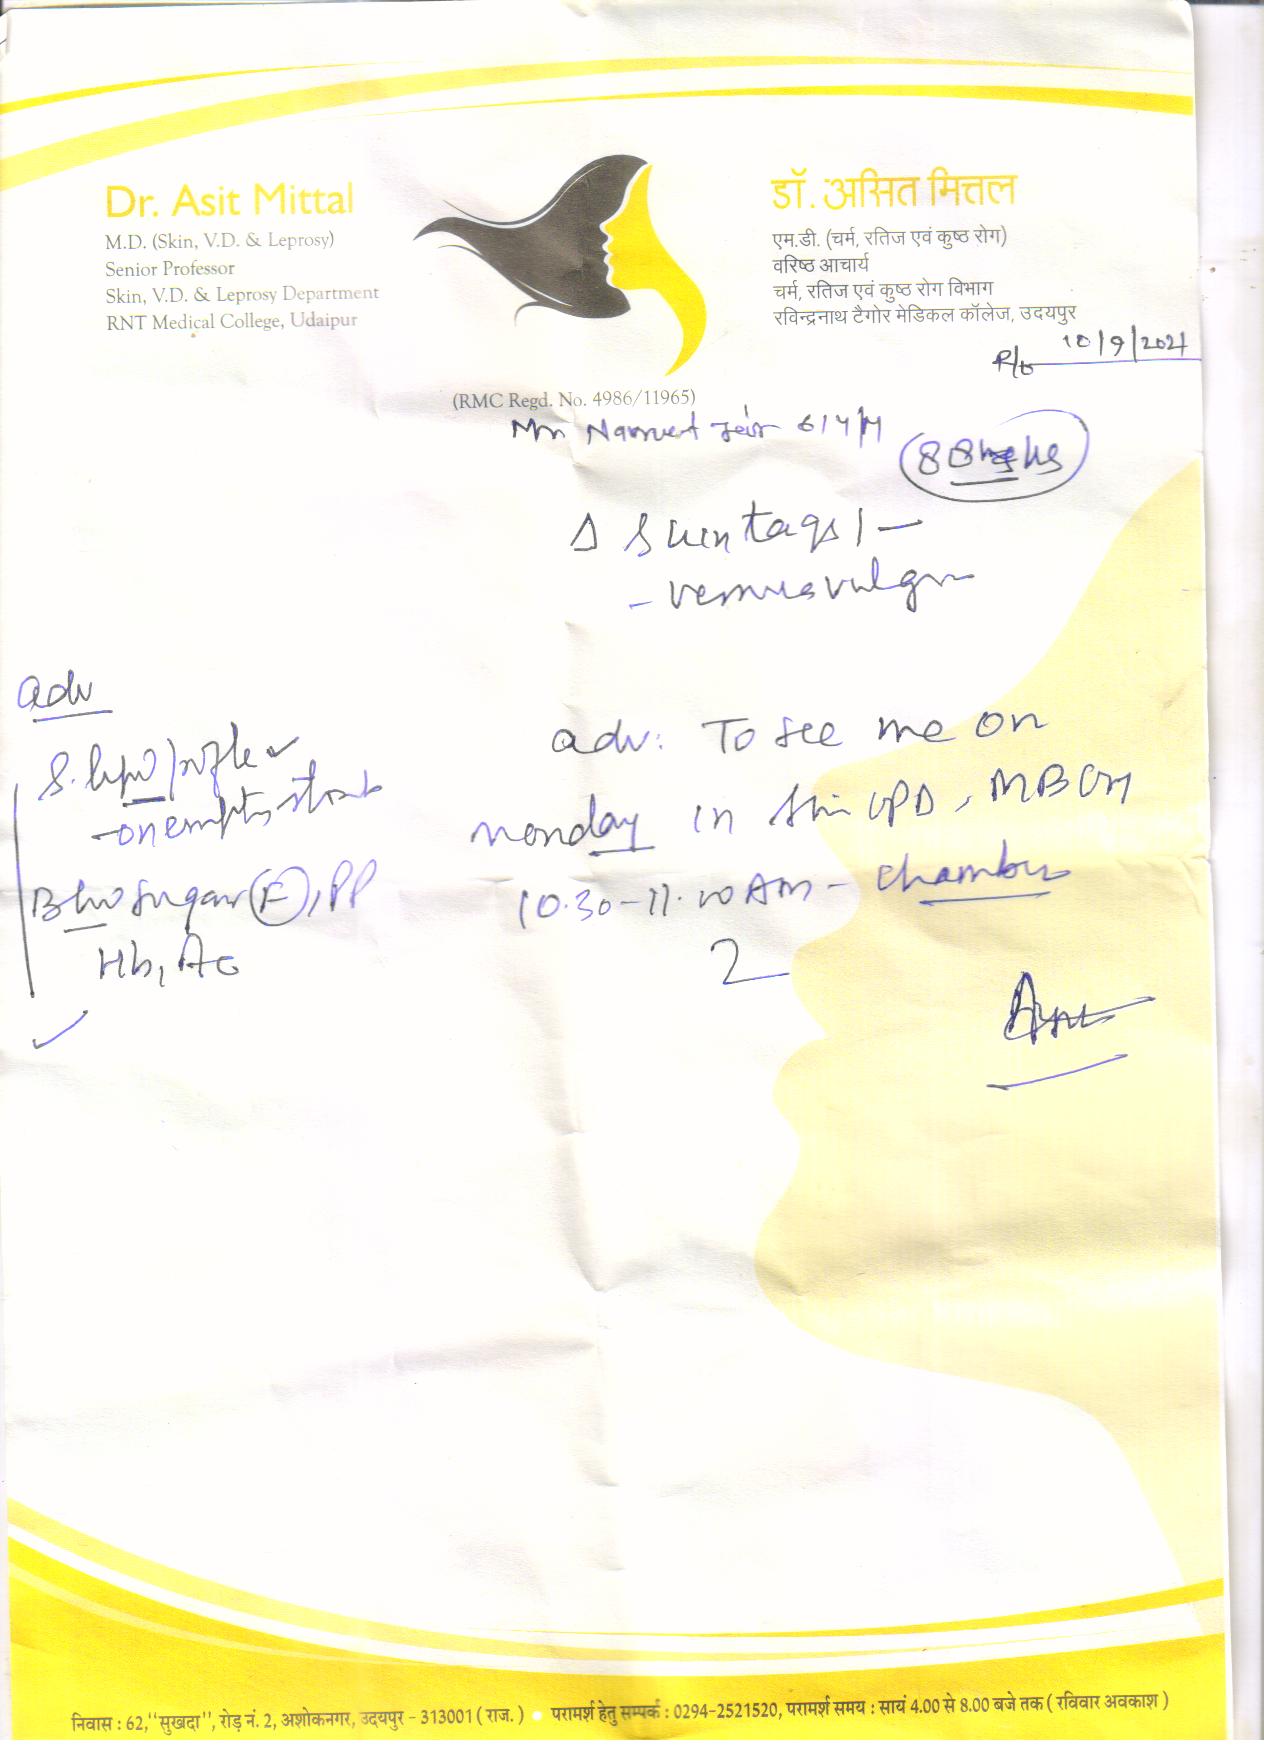 Dr. Asit Mittal
M.D. (Skin, V.D. & Leprosy)
Senior Professor
Skin, V.D. & Leprosy Department
RNT Medical College, Udaipur
डॉ. असित मित्तल
एम.डी. (चर्म, रतिज एवं कुष्ठ रोग)
वरिष्ठ आचार्य
चर्म, रतिज एवं कुष्ठ रोग विभाग
रविन्द्रनाथ टैगोर मेडिकल कॉलेज, उदयपुर
10/9/2021
(RMC Regd. No. 4986/11965)
88 kg
Δ Skin tags/
-
adv
on empty
Blood Sugar (F), PP
Hb,
adv: To see me on
monday in Skin OPD, MBGH
10.30-11.00 AM - Chamber
2
निवास : 62,"सुखदा", रोड़ नं. 2, अशोकनगर, उदयपुर - 313001 ( राज. ) • परामर्श हेतु सम्पर्क : 0294-2521520, परामर्श समय : सायं 4.00 से 8.00 बजे तक ( रविवार अवकाश )